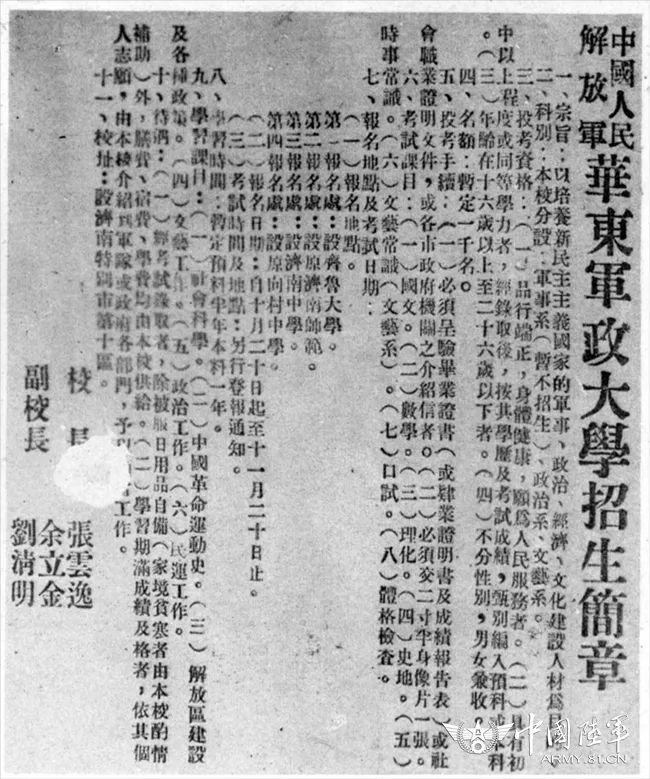 中國人民
解放軍
華東軍政大學招生簡章
一、宗旨：以培養新民主主義國家的軍事、政治、經濟、文化建設人材為目
二、科別：本校分設：軍事系（暫不招生）、政治系、文藝系。
三、投考資格：（一）品行端正，身體健康，願為人民服務者。（二）具有初
中以上程度或同等學力者，經錄取後，按其學歷及考試成績，甄別編入預科或本科
。（三）年齡在十六歲以上至二十六歲以下者。（四）不分性別，男女兼收。
四、名額：暫定一千名。
五、投考手續：（一）必須呈驗畢業證書（或肄業證明書及成績報告表）或社
會職業證明文件，或各市政府機關之介紹信者。（二）必須交二寸半身像片一張。
六、考試課目：（一）國文。（二）數學。（三）理化。（四）史地。（五）
時事常識。（六）文藝常識（文藝系）。（七）口試。（八）體格檢查。
七、報名地點及考試日期：
（一）報名地點。
第一報名處：設齊魯大學。
第二報名處：設原濟南師範。
第三報名處：設濟南中學。
第四報名處：設原向村中學。
（二）報名日期：自十月二十日起至十一月二十日止。
（三）考試時間及地點：另行登報通知。
八、學習時間：暫定預科半年本科一年。
九、學習課目：（一）社會科學。（二）中國革命運動史。（三）解放區建設
及各種政策。（四）文藝工作。（五）政治工作。（六）民運工作。
十、待遇：（一）經考試錄取者，除被服日用品自備（家境貧寒者由本校酌情
補助）外，膳費、宿費、學費均由本校供給。（二）學習期滿成績及格者，依其個
人志願，由本校介紹到軍隊或政府各部門，予以工作。
十一、校址：設濟南特別市第十區。
校長 張雲逸
副校長 余立金
劉清明
中國陸軍
ARMY.81.CN